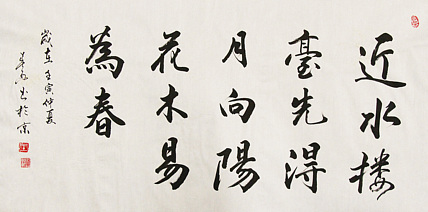 近水楼
臺先得
月向陽
花木易
為春
歲在壬寅仲夏
书於京